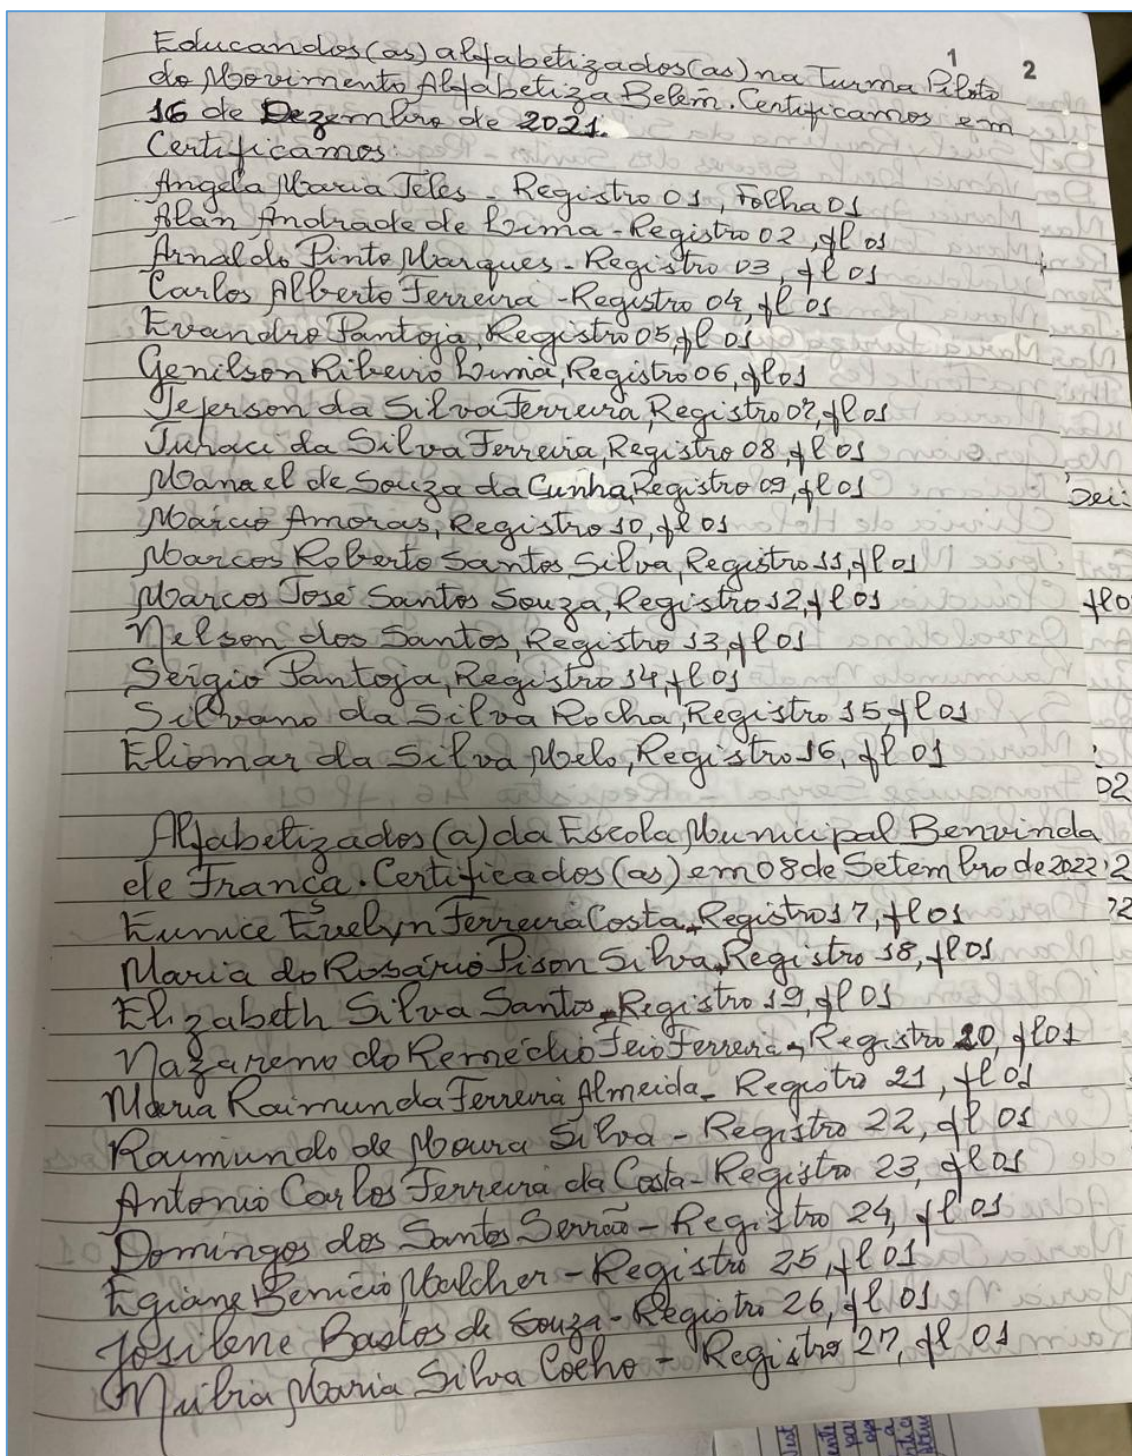 1 2
Educandos(as) alfabetizados(as) na Turma Piloto
do Movimento Alfabetiza Belém. Certificamos em
16 de Dezembro de 2021.
Certificamos:
Angela Maria Teles - Registro 01, Folha 01
Alan Andrade de Lima - Registro 02, fl 01
Arnaldo Pinto Marques - Registro 03, fl 01
Carlos Alberto Ferreira - Registro 04, fl 01
Evandro Pantoja, Registro 05, fl 01
Genilson Ribeiro Lima, Registro 06, fl 01
Jeferson da Silva Ferreira, Registro 07, fl 01
Juraci da Silva Ferreira, Registro 08, fl 01
Manael de Souza da Cunha, Registro 09, fl 01
Marcio Amoras, Registro 10, fl 01
Marcos Roberto Santos Silva, Registro 11, fl 01
Marcos José Santos Souza, Registro 12, fl 01
Nelson dos Santos, Registro 13, fl 01
Sergio Pantoja, Registro 14, fl 01
Silvano da Silva Rocha, Registro 15, fl 01
Eliomar da Silva Melo, Registro 16, fl 01
Alfabetizados(a) da Escola Municipal Benvinda
de França. Certificados(as) em 08 de Setembro de 2022
Eunice Evelyn Ferreira Costa, Registro 17, fl 01
Maria do Rosário Pison Silva, Registro 18, fl 01
Elizabeth Silva Santos, Registro 19, fl 01
Nazareno do Remédio Feio Ferreira, Registro 20, fl 01
Maria Raimunda Ferreira Almeida - Registro 21, fl 01
Raimundo de Moura Silva - Registro 22, fl 01
Antonio Carlos Ferreira da Costa - Registro 23, fl 01
Domingos dos Santos Serrão - Registro 24, fl 01
Egiane Benicio Malcher - Registro 25, fl 01
Josilene Bastos de Souza - Registro 26, fl 01
Nubia Maria Silva Coelho - Registro 27, fl 01